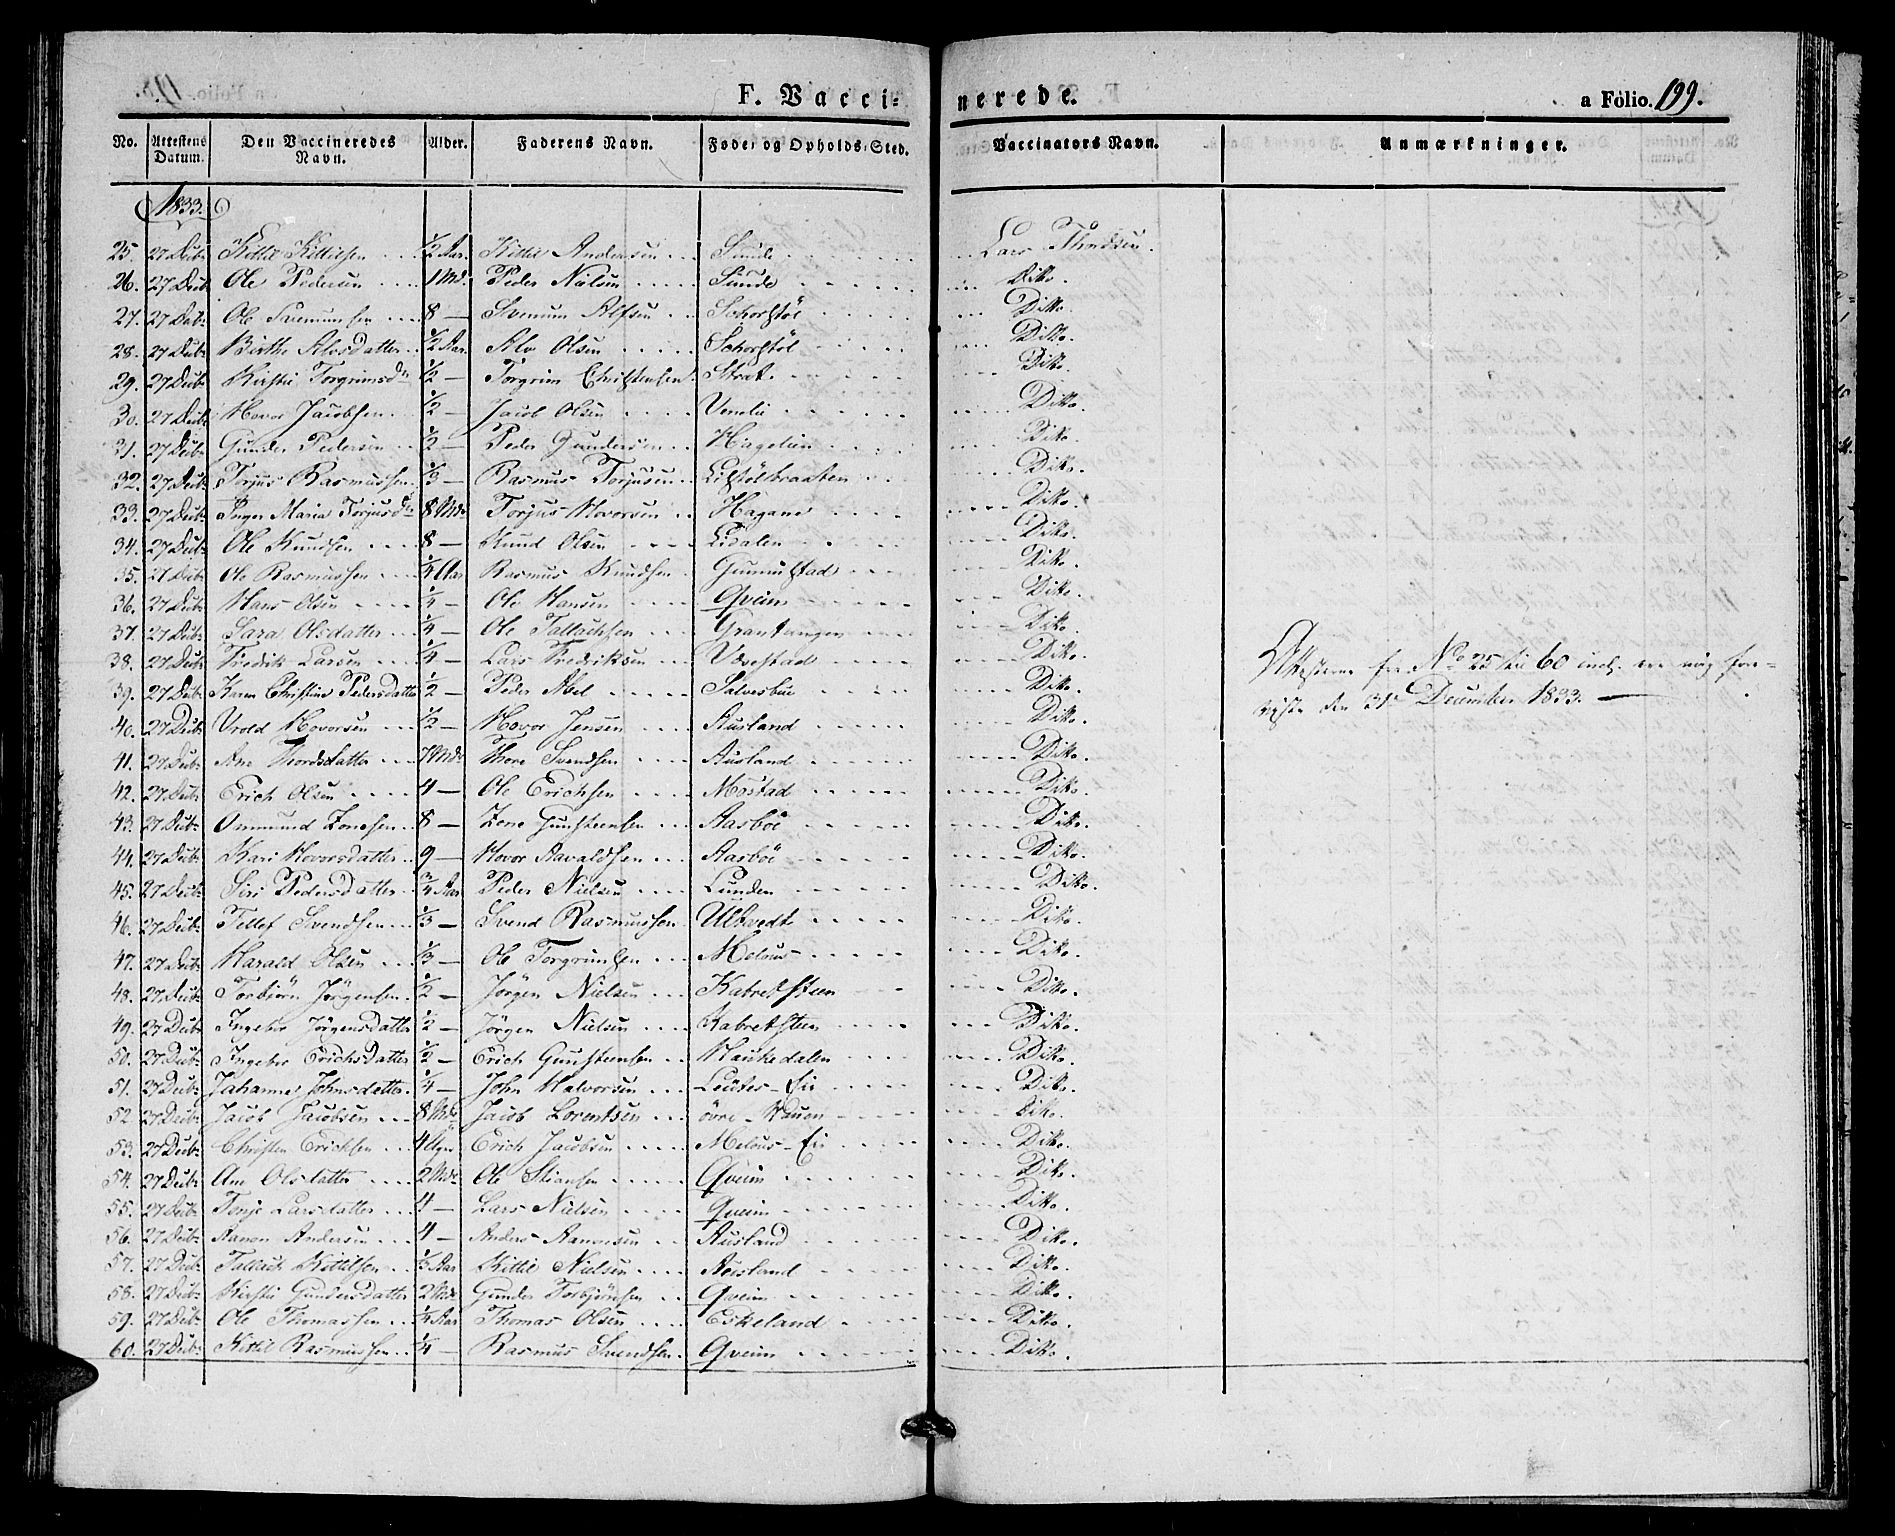 F. Vaccinerede. a Folio. 199.
No. Attestens Datum. Den Vaccineredes Navn. Alder. Faderens Navn. Føde- og Opholds-Sted. Vaccinators Navn. Anmærkninger.
1833.
25. 27 Decbr Kittil Kittilsen 1/2 Aar. Kittil Andersen Sunde Lars
26. 27 Decbr Ole Pedersen 1 Md. Peder Nielsen Sunde Ditto.
27. 27 Decbr Ole 8 — Alfsen Ditto.
28. 27 Decbr Birthe Alvsdatter 1/2 Aar Alv Olsen Ditto.
29. 27 Decbr Kirsti Torgrimsdr 1/2 — Torgrim Christensen Strat Ditto.
30. 27 Decbr Hovor Jacobsen 1/2 — Jacob Olsen Ditto.
31. 27 Decbr Gunder Pedersen 1/2 — Peder Gundersen Ditto.
32. 27 Decbr Torjus Rasmussen 1/3 — Rasmus Torjusen Ditto.
33. 27 Decbr Inger Maria Torjusdr 8 Mdr Torjus Hovorsen Hagane Ditto.
34. 27 Decbr Ole Knudsen 8 — Knud Olsen Lidalen Ditto.
35. 27 Decbr Ole Rasmussen 1/4 Aar Rasmus Knudsen Ditto.
36. 27 Decbr Hans Olsen 1/4 — Ole Hansen Qveim Ditto.
37. 27 Decbr Sara Olsdatter 1/4 — Ole Tallachsen Ditto.
38. 27 Decbr Fredrik Larsen 1/4 — Lars Fredriksen Ditto.
Attesterne fra No 25 til 60 incl. ere mig fore-
39. 27 Decbr Karen Christine Pedersdatter 1/2 — Peder Abel Ditto.
viste den 31te December 1833. —
40. 27 Decbr Hovorsen 1/2 — Hovor Jensen Ausland Ditto.
41. 27 Decbr Ane Thordsdatter 7 Mdr Thore Svendsen Ausland Ditto.
42. 27 Decbr Erich Olsen 4 — Ole Erichsen Møstad Ditto.
43. 27 Decbr Ommund Zonesen 8 — Zone Gunsteensen Aasböe Ditto.
44. 27 Decbr Kari Hovorsdatter 9 — Hovor Aavaldsen Aasböe Ditto.
45. 27 Decbr Siri Pedersdatter 3/4 Aar Peder Nielsen Lunden Ditto.
46. 27 Decbr Tellef Svendsen 1/3 — Svend Rasmussen Ulltvedt Ditto.
47. 27 Decbr Harald Olsen 1/3 — Ole Torgrimsen Melaas Ditto.
48. 27 Decbr Torbiörn Jörgensen 1/2 — Jörgen Nielsen Kabretsteen Ditto.
49. 27 Decbr Ingebor Jörgensdatter 1/2 — Jörgen Nielsen Kabretsteen Ditto.
50. 27 Decbr Ingebor Erichsdatter 1/2 — Erich Gunsteensen Haukedalen Ditto.
51. 27 Decbr Johanne Johnsdatter 1/4 — John Halvorsen Ditto.
52. 27 Decbr Jacob Jacobsen 8 Mdr Jacob Lorentsen övre Ditto.
53. 27 Decbr Christen Erichsen 4 Uger Erich Jacobsen Melaas-Eie Ditto.
54. 27 Decbr Ane Olsdatter 2 Mdr Ole Stiansen Qveim Ditto.
55. 27 Decbr Tonje Larsdatter 4 — Lars Nielsen Qveim Ditto.
56. 27 Decbr Aanon Andersen 4 — Anders Aanonsen Ausland Ditto.
57. 27 Decbr Tallach Kittilsen 1/3 Aar Kittil Nielsen Ausland Ditto.
58. 27 Decbr Kirsti Gundersdatter 2 Mdr Gunder Torbjörnsen Qveim Ditto.
59. 27 Decbr Ole Thomassen 1/4 Aar Thomas Olsen Eskeland Ditto.
60. 27 Decbr Kittil Rasmussen 1/4 Rasmus Svendsen Qveim Ditto.